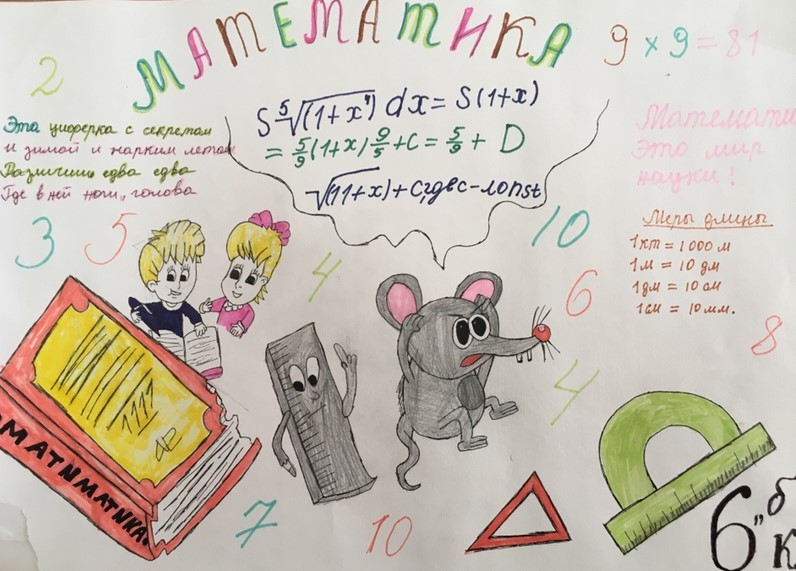 МАТЕМАТИКА
9 x 9 = 81
2
Эта циферка с секретом
и зимой и жарким летом
Различишь едва едва
Где в ней ноги, голова
S ⁵√(1+x⁴) dx = S(1+x)
= 5/9 (1+x) 9/5 + C = 5/9 + D
√(11+x) + C,где C-ıonst
Математи
Это мир
науки!
Меры длины
1кт = 1000 м
1м = 10 дм
1дм = 10 см
1см = 10 мм.
3
5
4
10
6
8
4
МАТИМАТИКА.
7
10
6 "б
К